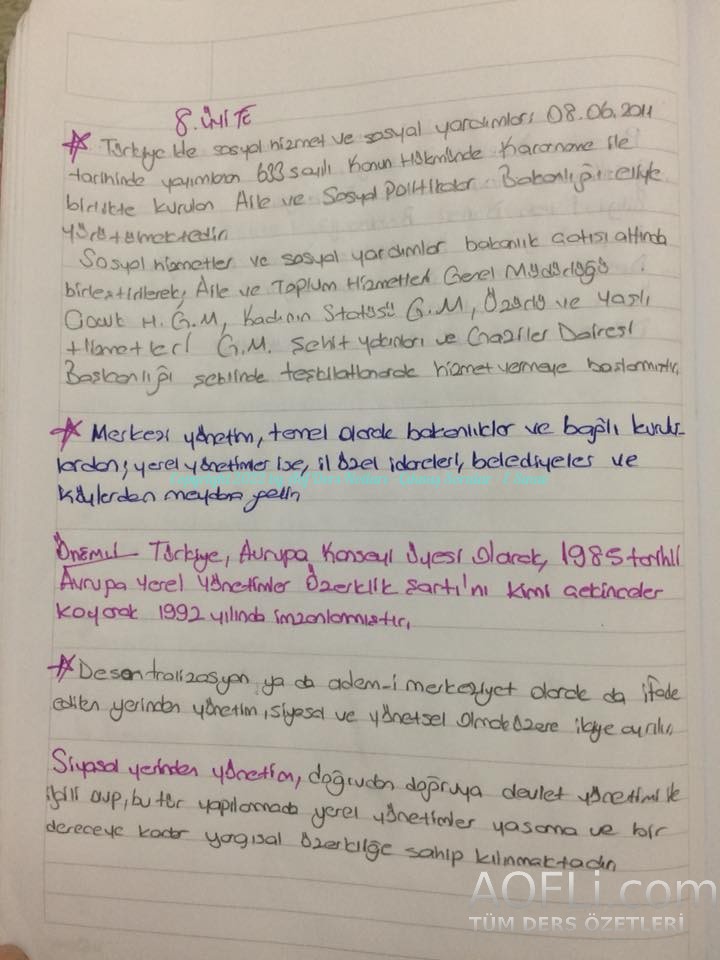 8. ÜNİTE
* Türkiye'de sosyal hizmet ve sosyal yardımları 08.06.2011
tarihinde yayımlanan 633 sayılı Kanun Hükmünde Kararname ile
birlikte kurulan Aile ve Sosyal Politikalar Bakanlığı eliyle
yürütmektedir.
Sosyal hizmetler ve sosyal yardımlar bakanlık çatısı altında
birleştirilerek, Aile ve Toplum Hizmetleri Genel Müdürlüğü
Çocuk H. G.M, Kadının Statüsü G.M, Özürlü ve Yaşlı
Hizmetleri G.M. Şehit yakınları ve Gaziler Dairesi
Başkanlığı şeklinde teşkilatlanarak hizmet vermeye başlamıştır.
* Merkezi yönetim, temel olarak bakanlıklar ve bağlı kuruluş-
lardan; yerel yönetimler ise, il özel idareleri, belediyeler ve
köylerden meydana gelir.
Önemli Türkiye, Avrupa Konseyi üyesi olarak, 1985 tarihli
Avrupa Yerel Yönetimler Özerklik Şartı'nı kimi çekinceler
koyarak 1992 yılında imzalamıştır.
* Desantralizasyon ya da adem-i merkeziyet olarak da ifade
edilen yerinden yönetim, siyasal ve yönetsel olmak üzere ikiye ayrılır.
Siyasal yerinden yönetim, doğrudan doğruya devlet yönetimi ile
ilgili olup, bu tür yapılanmada yerel yönetimler yasama ve bir
dereceye kadar yargısal özerkliğe sahip kılınmaktadır.
AOFLi.com
TÜM DERS ÖZETLERİ